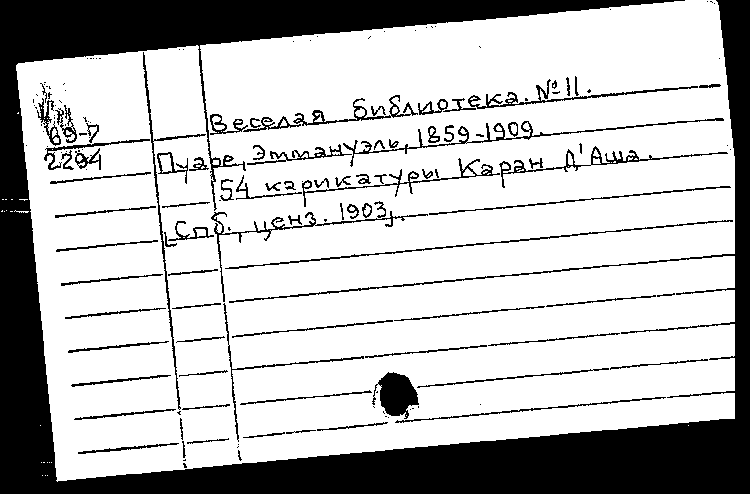 Веселая библиотека. № 11.
69-7
2294
Пуаре, Эммануэль, 1859-1909.
54 карикатуры Каран Д'Аша.
[Спб., ценз. 1903].